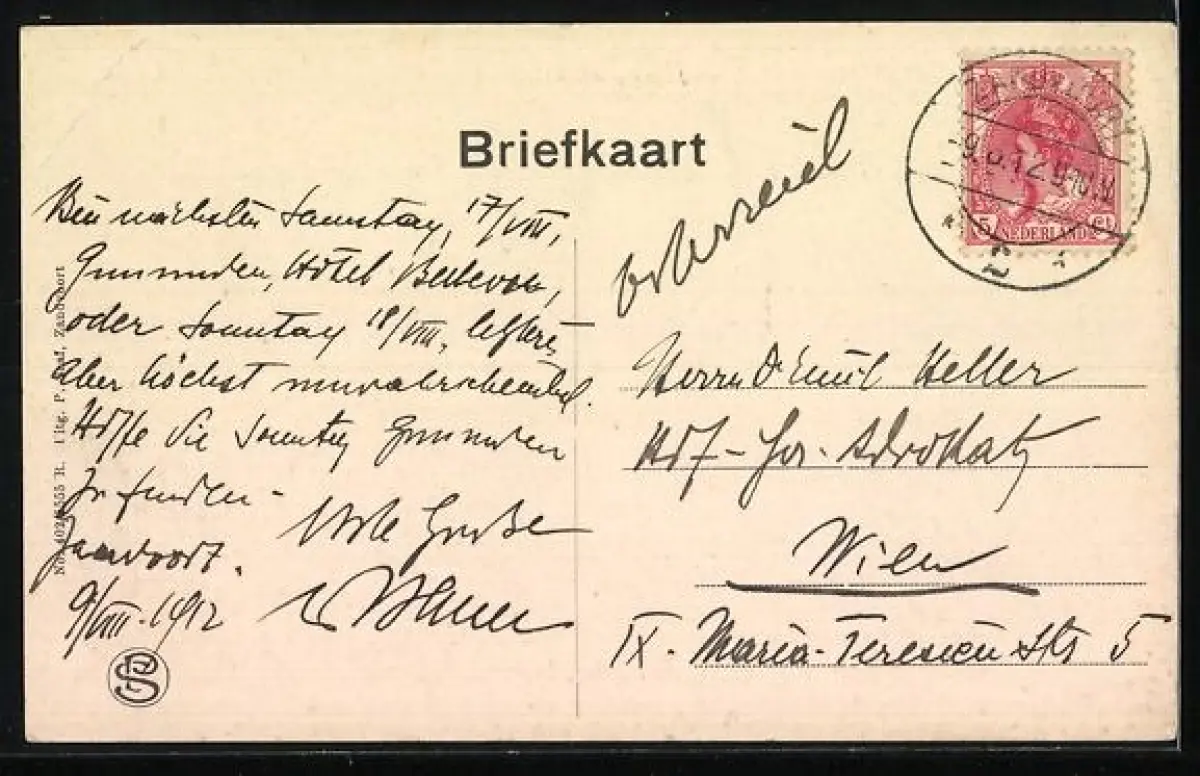 Briefkaart
Bin nächsten Samstag, 17/VIII,
Gmunden, Hôtel Bellevue,
oder Sonntag 18/VIII,
aber höchst unwahrscheinlich.
Hoffe Sie Sonntag Gmunden
zu finden -
Viele Grüße
Zandvoort.
9/VIII. 1912
Uitg. P. Zandvoort
PS
5 NEDERLAND Ct
Herrn Dr Emil Heller
Hof- Ger. Advokat
Wien
IX. Maria-Teresien Str 5